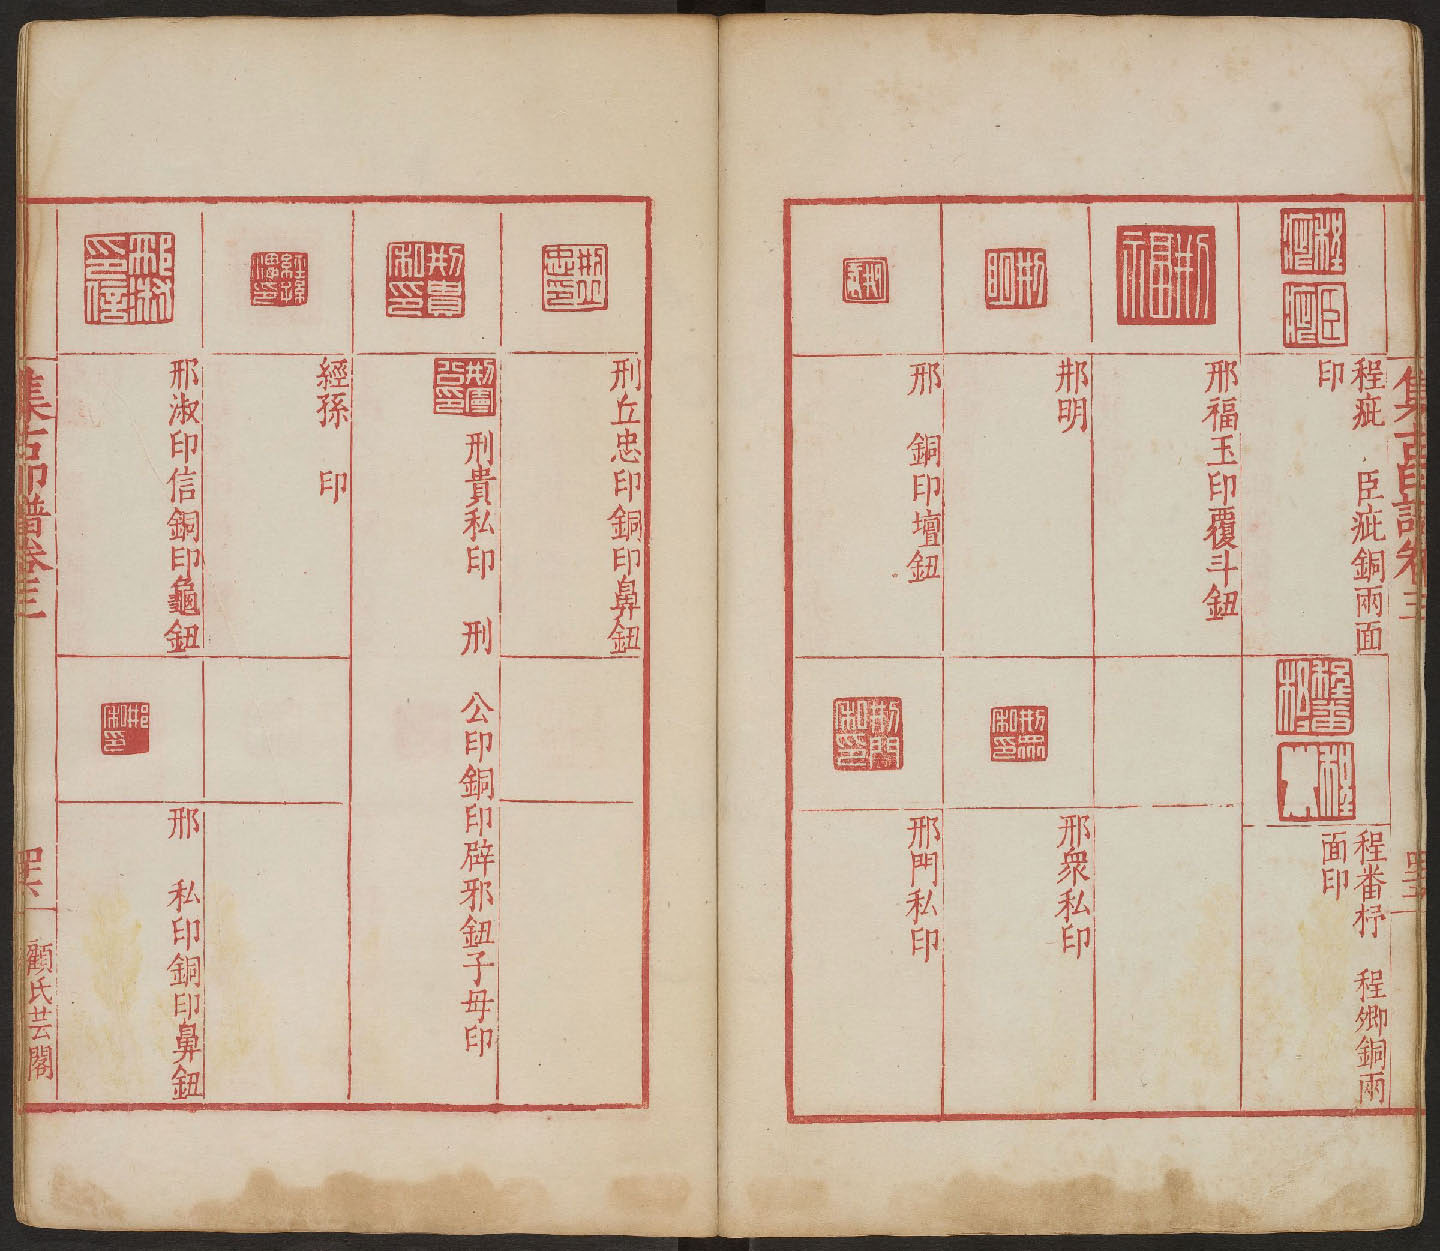 集古印譜卷三
程疵　臣疵銅兩面
印
程番杼　程鄉銅兩
面印
邢福玉印覆斗鈕
邢明
邢衆私印
邢　銅印壇鈕
邢門私印
刑丘忠印銅印鼻鈕
刑貴私印　刑　公印銅印辟邪鈕子母印
經孫　印
邢淑印信銅印龜鈕
邢　私印銅印鼻鈕
集古印譜卷三
顧氏芸閣